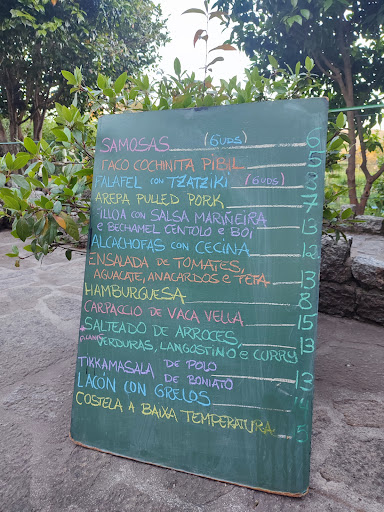 SAMOSAS (6 UDS) 6
TACO COCHINITA PIBIL 5
FALAFEL CON TZATZIKI (6 UDS) 8
AREPA PULLED PORK 7
FILLOA CON SALSA MARIÑEIRA
e BECHAMEL CENTOLO e BOI 13
ALCACHOFAS CON CECINA 12
ENSALADA DE TOMATES,
AGUACATE, ANACARDOS e TETA 13
HAMBURGUESA 8
CARPACCIO DE VACA VELLA 15
SALTEADO DE ARROCES,
VERDURAS, LANGOSTINO e CURRY 13
TIKKAMASALA DE POLO
DE BONIATO 13
LACÓN CON GRELOS
COSTELA A BAIXA TEMPERATURA 5